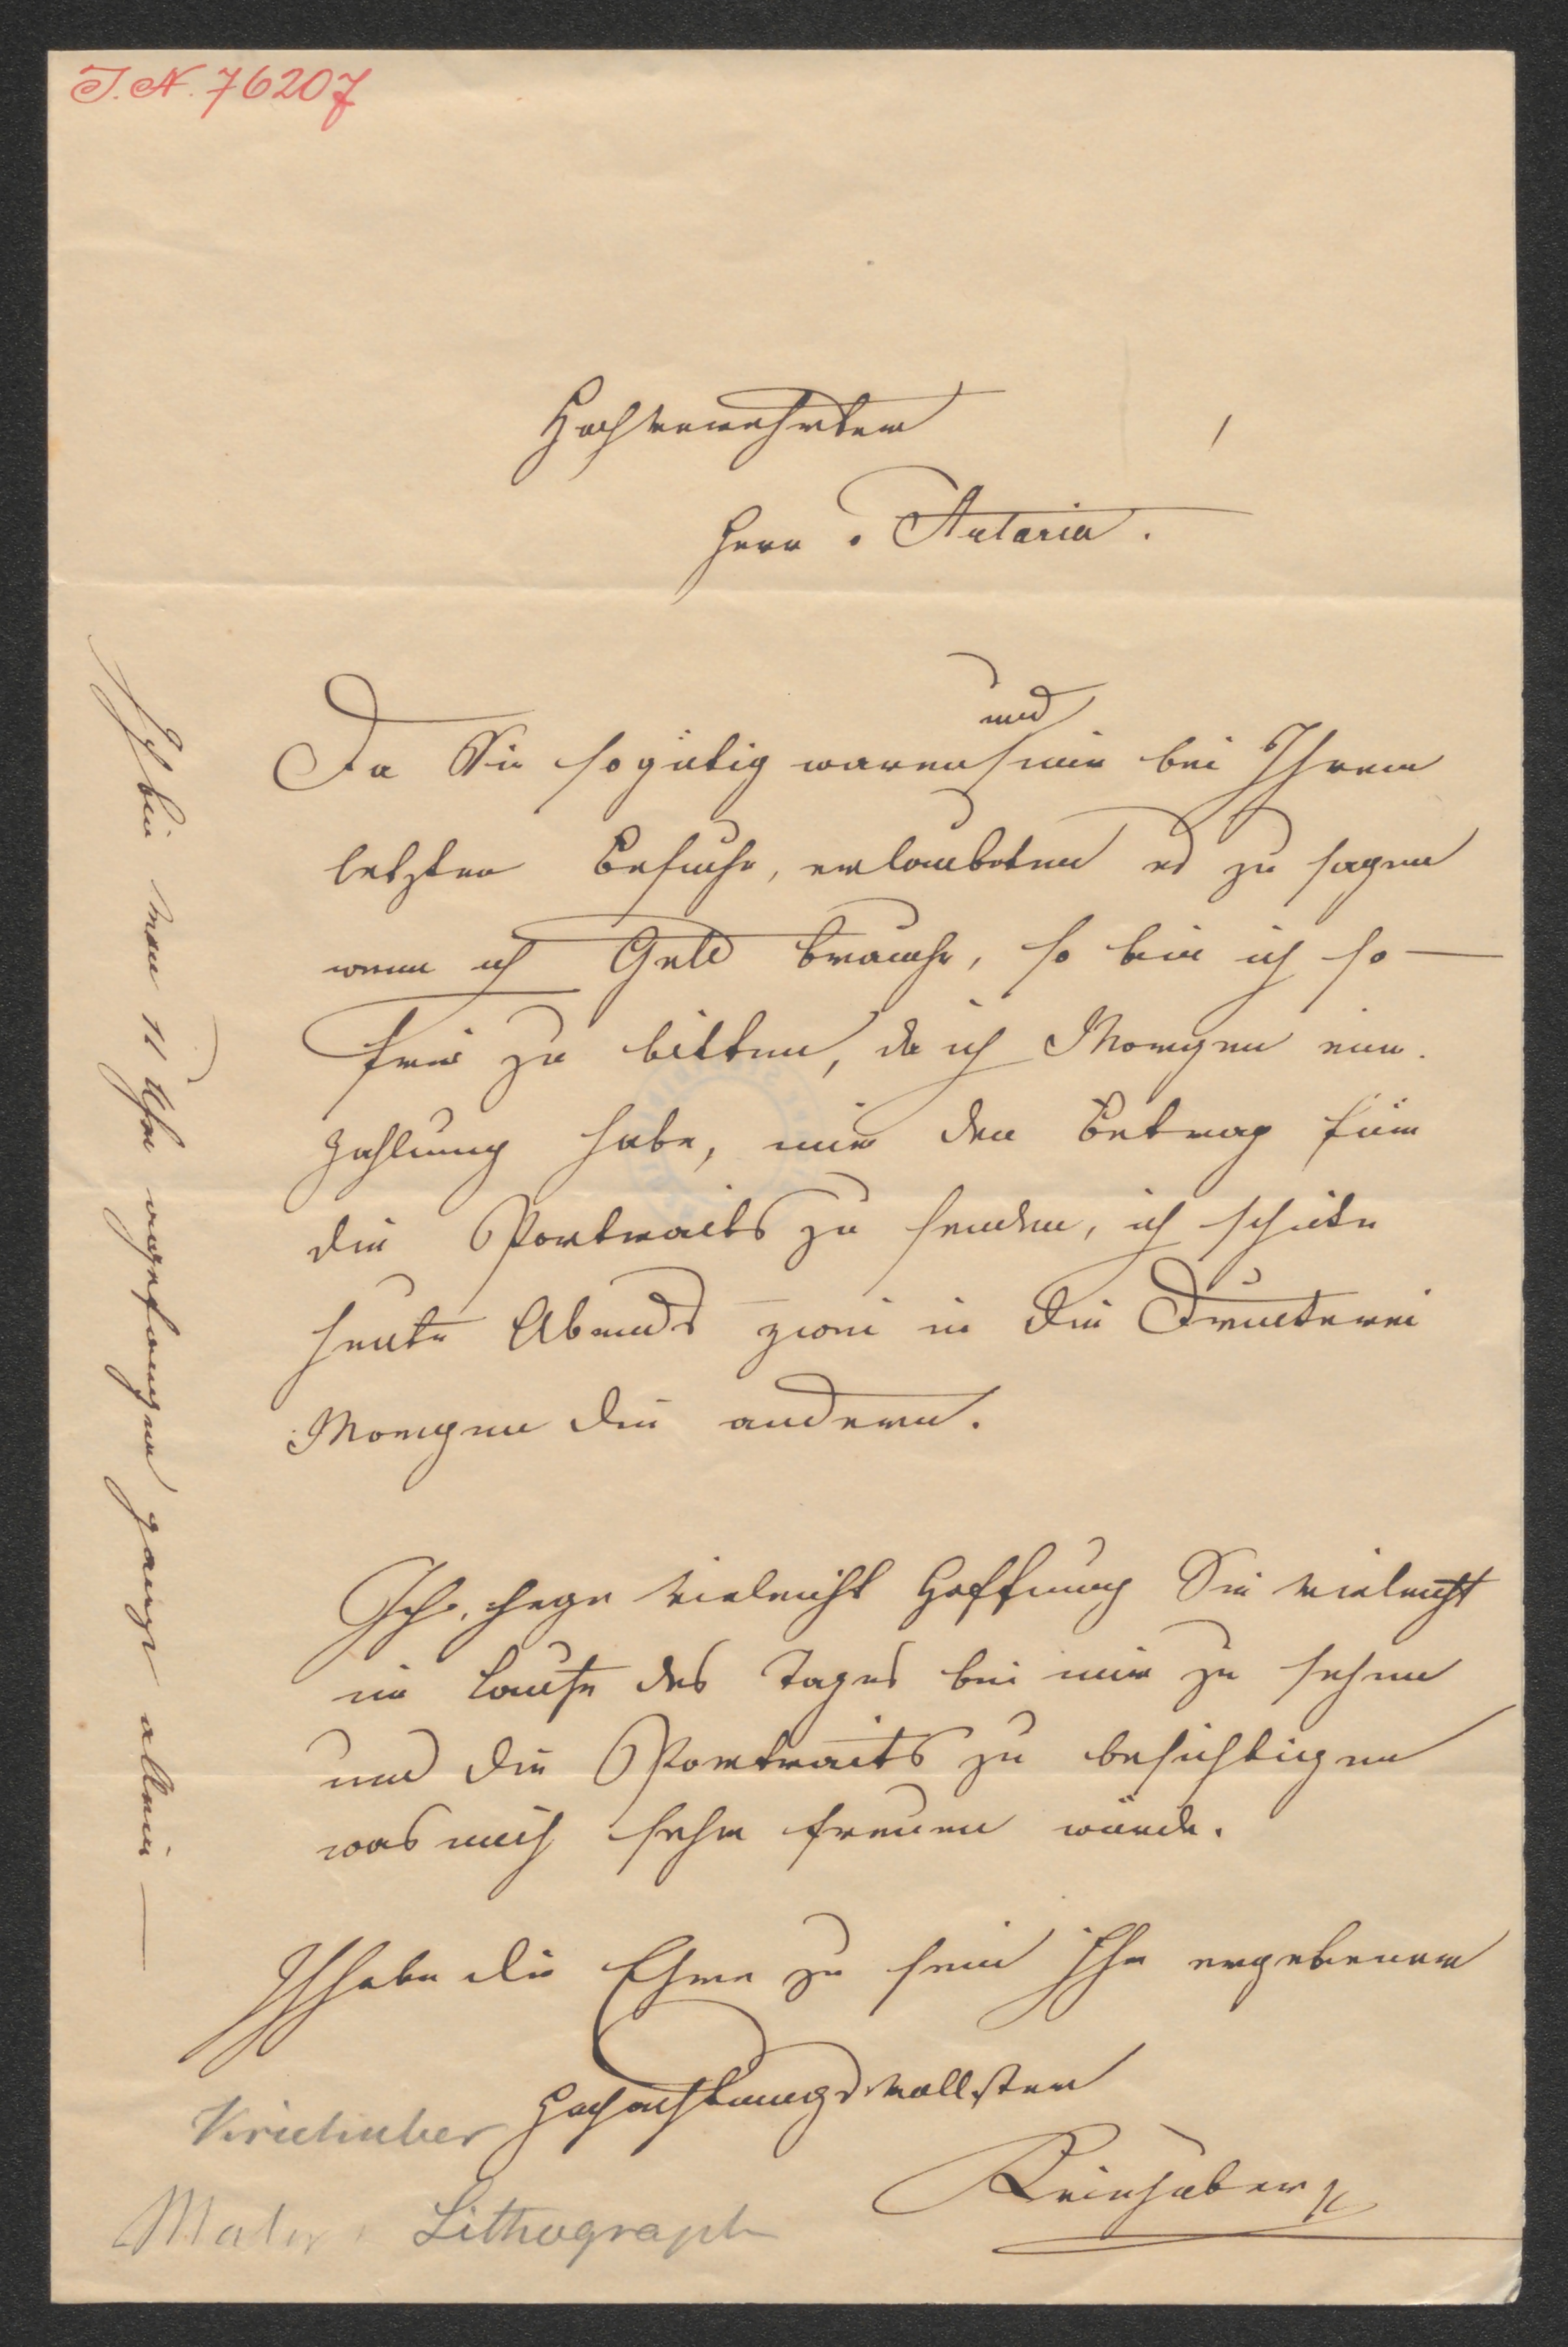 I. N. 76207
Hochverehrter
Herr v Artaria.
und
Da Sie so gütig waren mir bei Ihrem
letzten Besuche, erlaubten es zu sagen
wenn ich Geld brauche, so bin ich so
frei zu bitten, da ich Morgen eine
Zahlung habe, mir den Betrag für
die Portraits zu senden, ich schicke
heute Abends zwei in die Druckerei
Morgen die andern.
Ich hege vieleicht Hoffnung Sie vieleicht
im Laufe des Tages bei mir zu sehen
und die Portraits zu besichtigen
was mich sehr freuen würde.
Ich habe die Ehre zu sein Ihr ergebener
Hochachtungsvollster
Kriehuber
Kriehuber
Maler Lithograph
Ich bin von 11 Uhr angefangen ganz allein